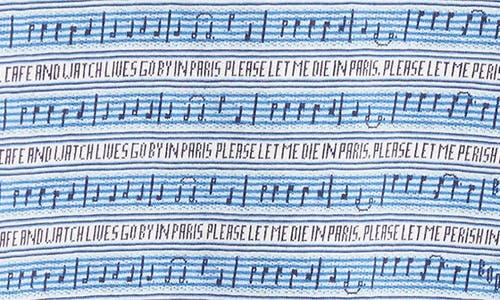 CAFE AND WATCH LIVES GO BY IN PARIS. PLEASE LET ME DIE IN PARIS. PLEASE LET ME PERISH
CAFE AND WATCH LIVES GO BY IN PARIS. PLEASE LET ME DIE IN PARIS. PLEASE LET ME PERISH
CAFE AND WATCH LIVES GO BY IN PARIS. PLEASE LET ME DIE IN PARIS. PLEASE LET ME PERISH IN